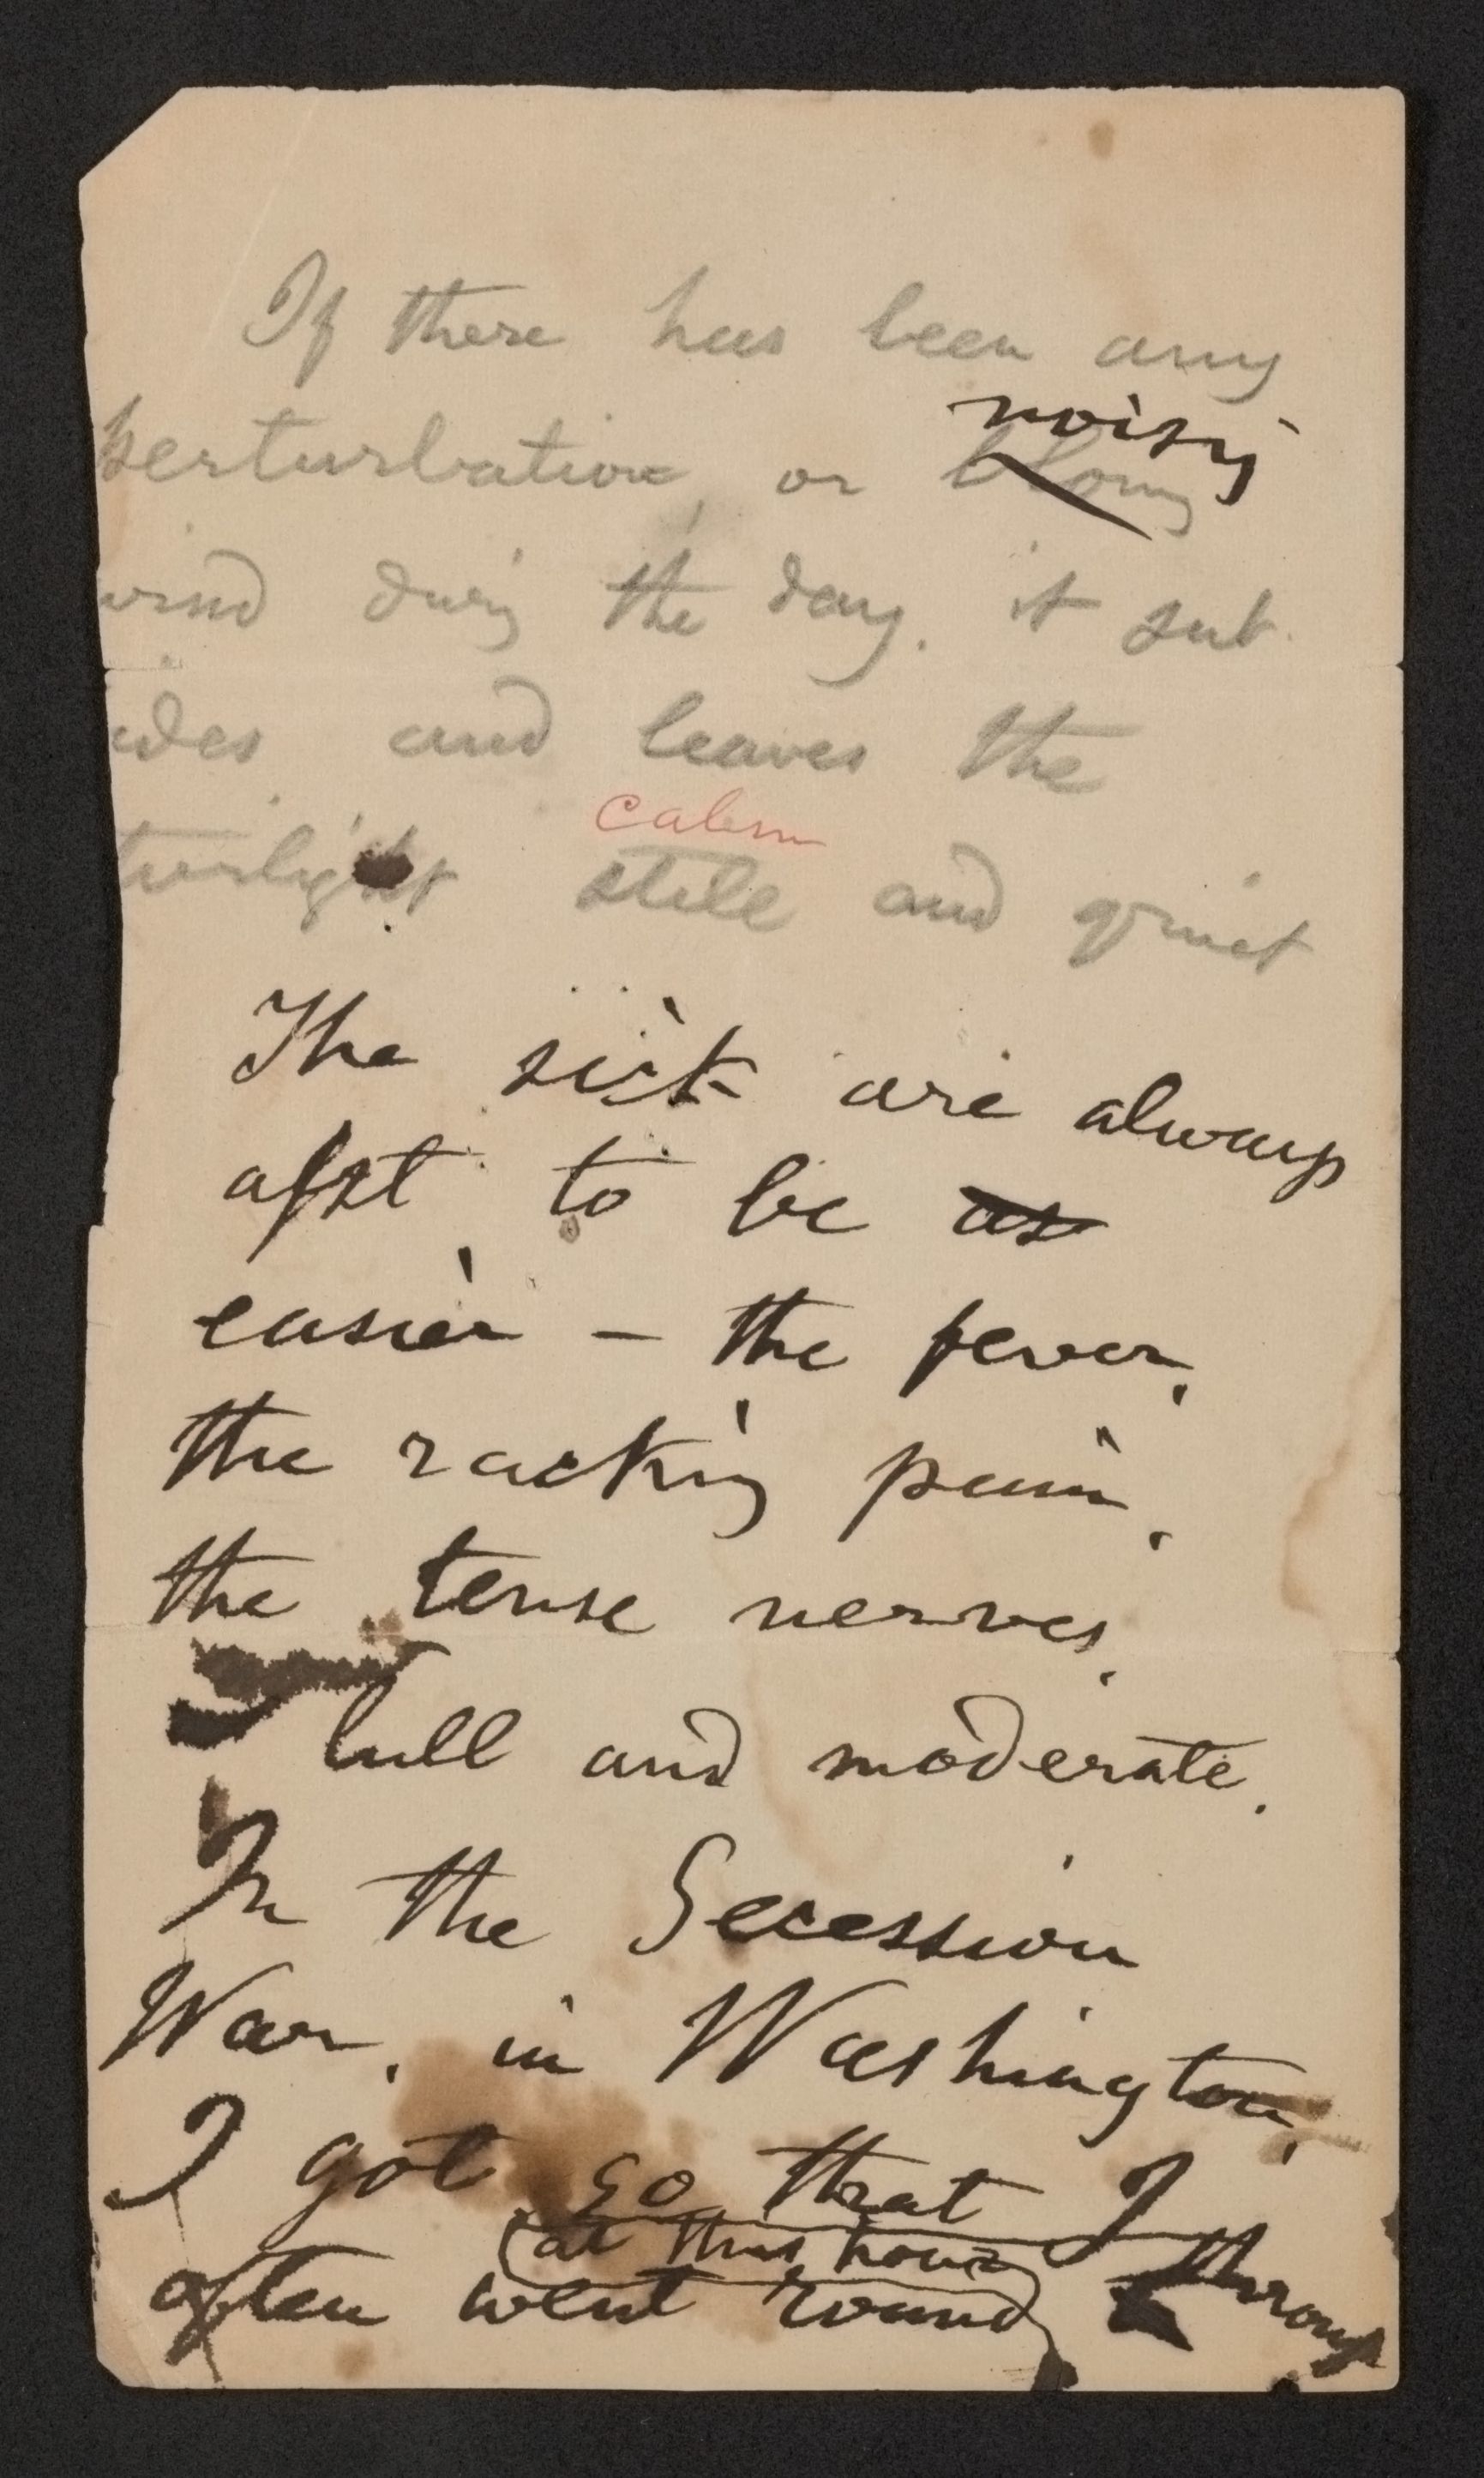 If there has been any
noisy
perturbation, or
wind during the day, it sub
sides and leaves the
calm
twilight still and quiet
The sick are always
apt to be as
easier – the fever,
the racking pain,
the tense nerves,
lull and moderate.
In the Secession
War, in Washington,
I got so that I
at this hour
often went round through